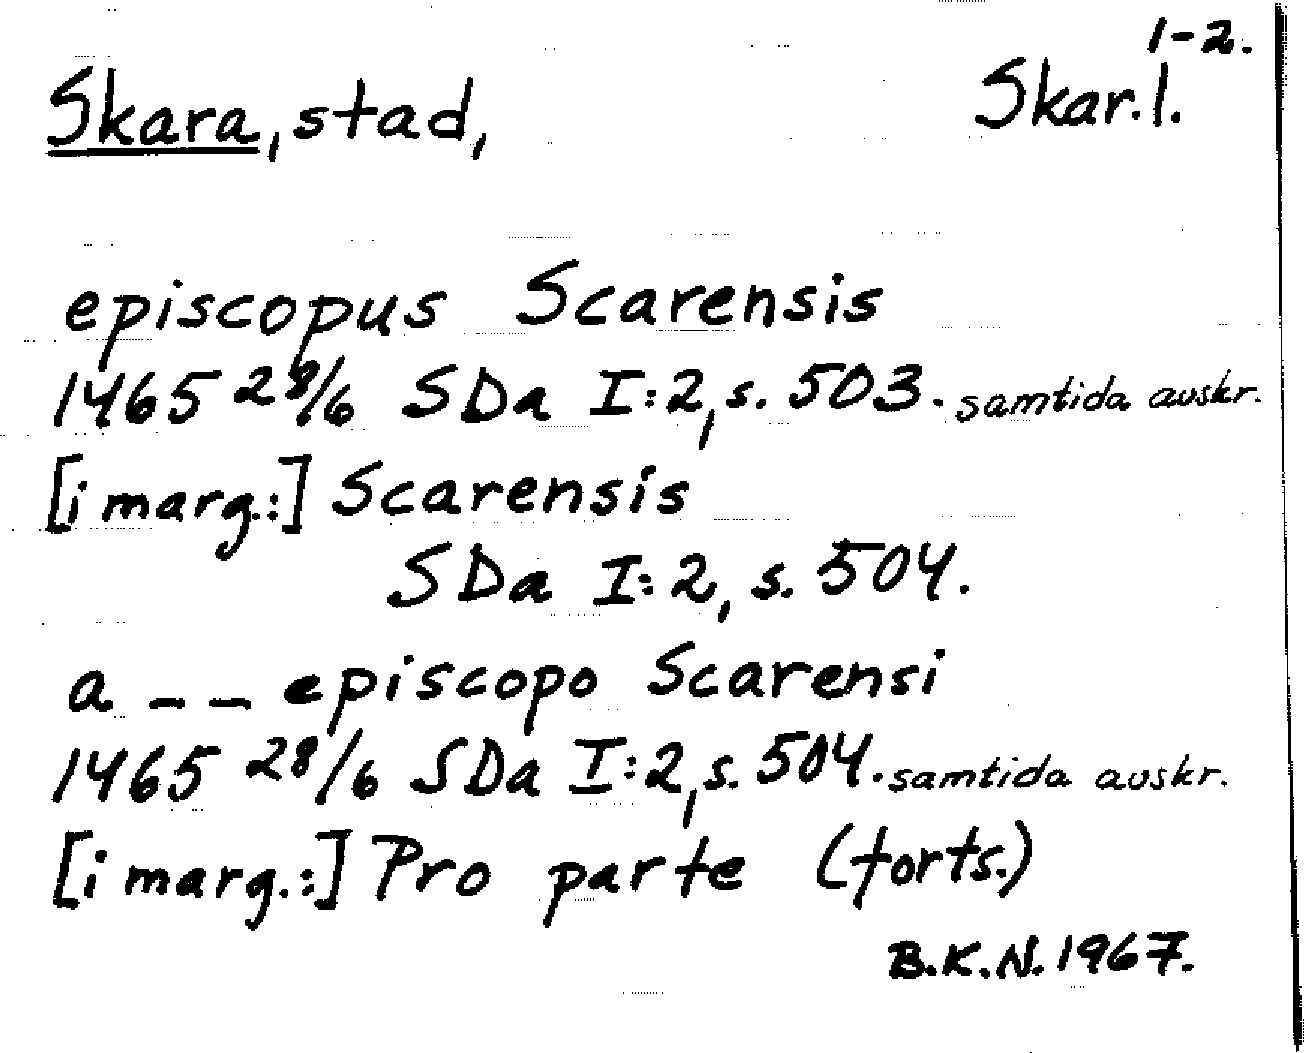 1-2.
Skara, stad, Skar. l.
episcopus Scarensis
1465 28/6 SDa I:2, s. 503. samtida avskr.
[i marg.:] Scarensis
SDa I:2, s. 504.
a _ _ episcopo Scarensi
1465 28/6 SDa I:2, s. 504. samtida avskr.
[i marg.:] Pro parte (forts.)
B.K.N. 1967.